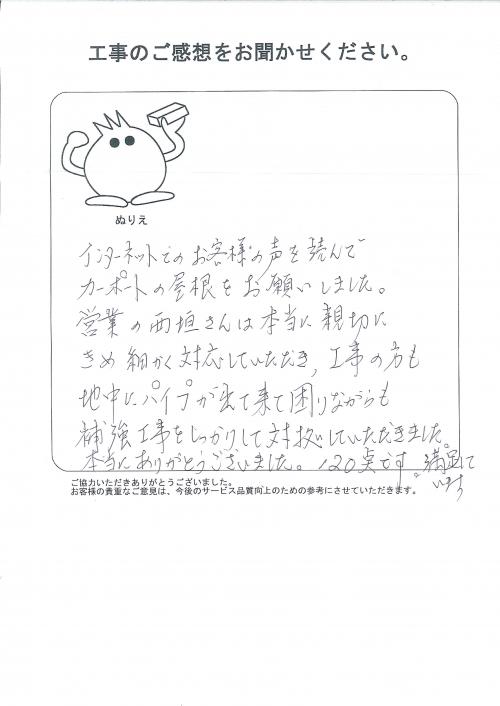 工事のご感想をお聞かせください。
ぬりえ
インターネットでのお客様の声を読んで
カーポートの屋根をお願いしました。
営業の西垣さんは本当に親切に
きめ細かく対応していただき、工事の方も
地中にパイプが出て来て困りながらも
補強工事をしっかりして対処していただきました。
本当にありがとうございました。120点です。満足て
います
ご協力いただきありがとうございました。
お客様の貴重なご意見は、今後のサービス品質向上のための参考にさせていただきます。